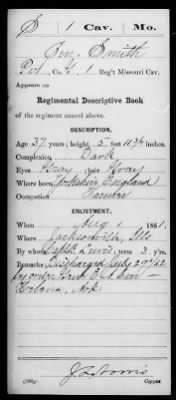 S | 1 | Cav. | Mo.
Wm. Smith
Pvt, Co. G, 1 Reg't Missouri Cav.
Appears on
Regimental Descriptive Book
of the regiment named above.
DESCRIPTION.
Age 37 years; height 5 feet 11 3/4 inches
Complexion Dark
Eyes Gray; hair Gray
Where born Yorkshire England
Occupation Farmer
ENLISTMENT.
When Aug 1, 1861.
Where Jacksonville, Ills
By whom term 3 y'rs.
Remarks Discharged July 29/62
by order Gen
Helena, Ark
Copyist